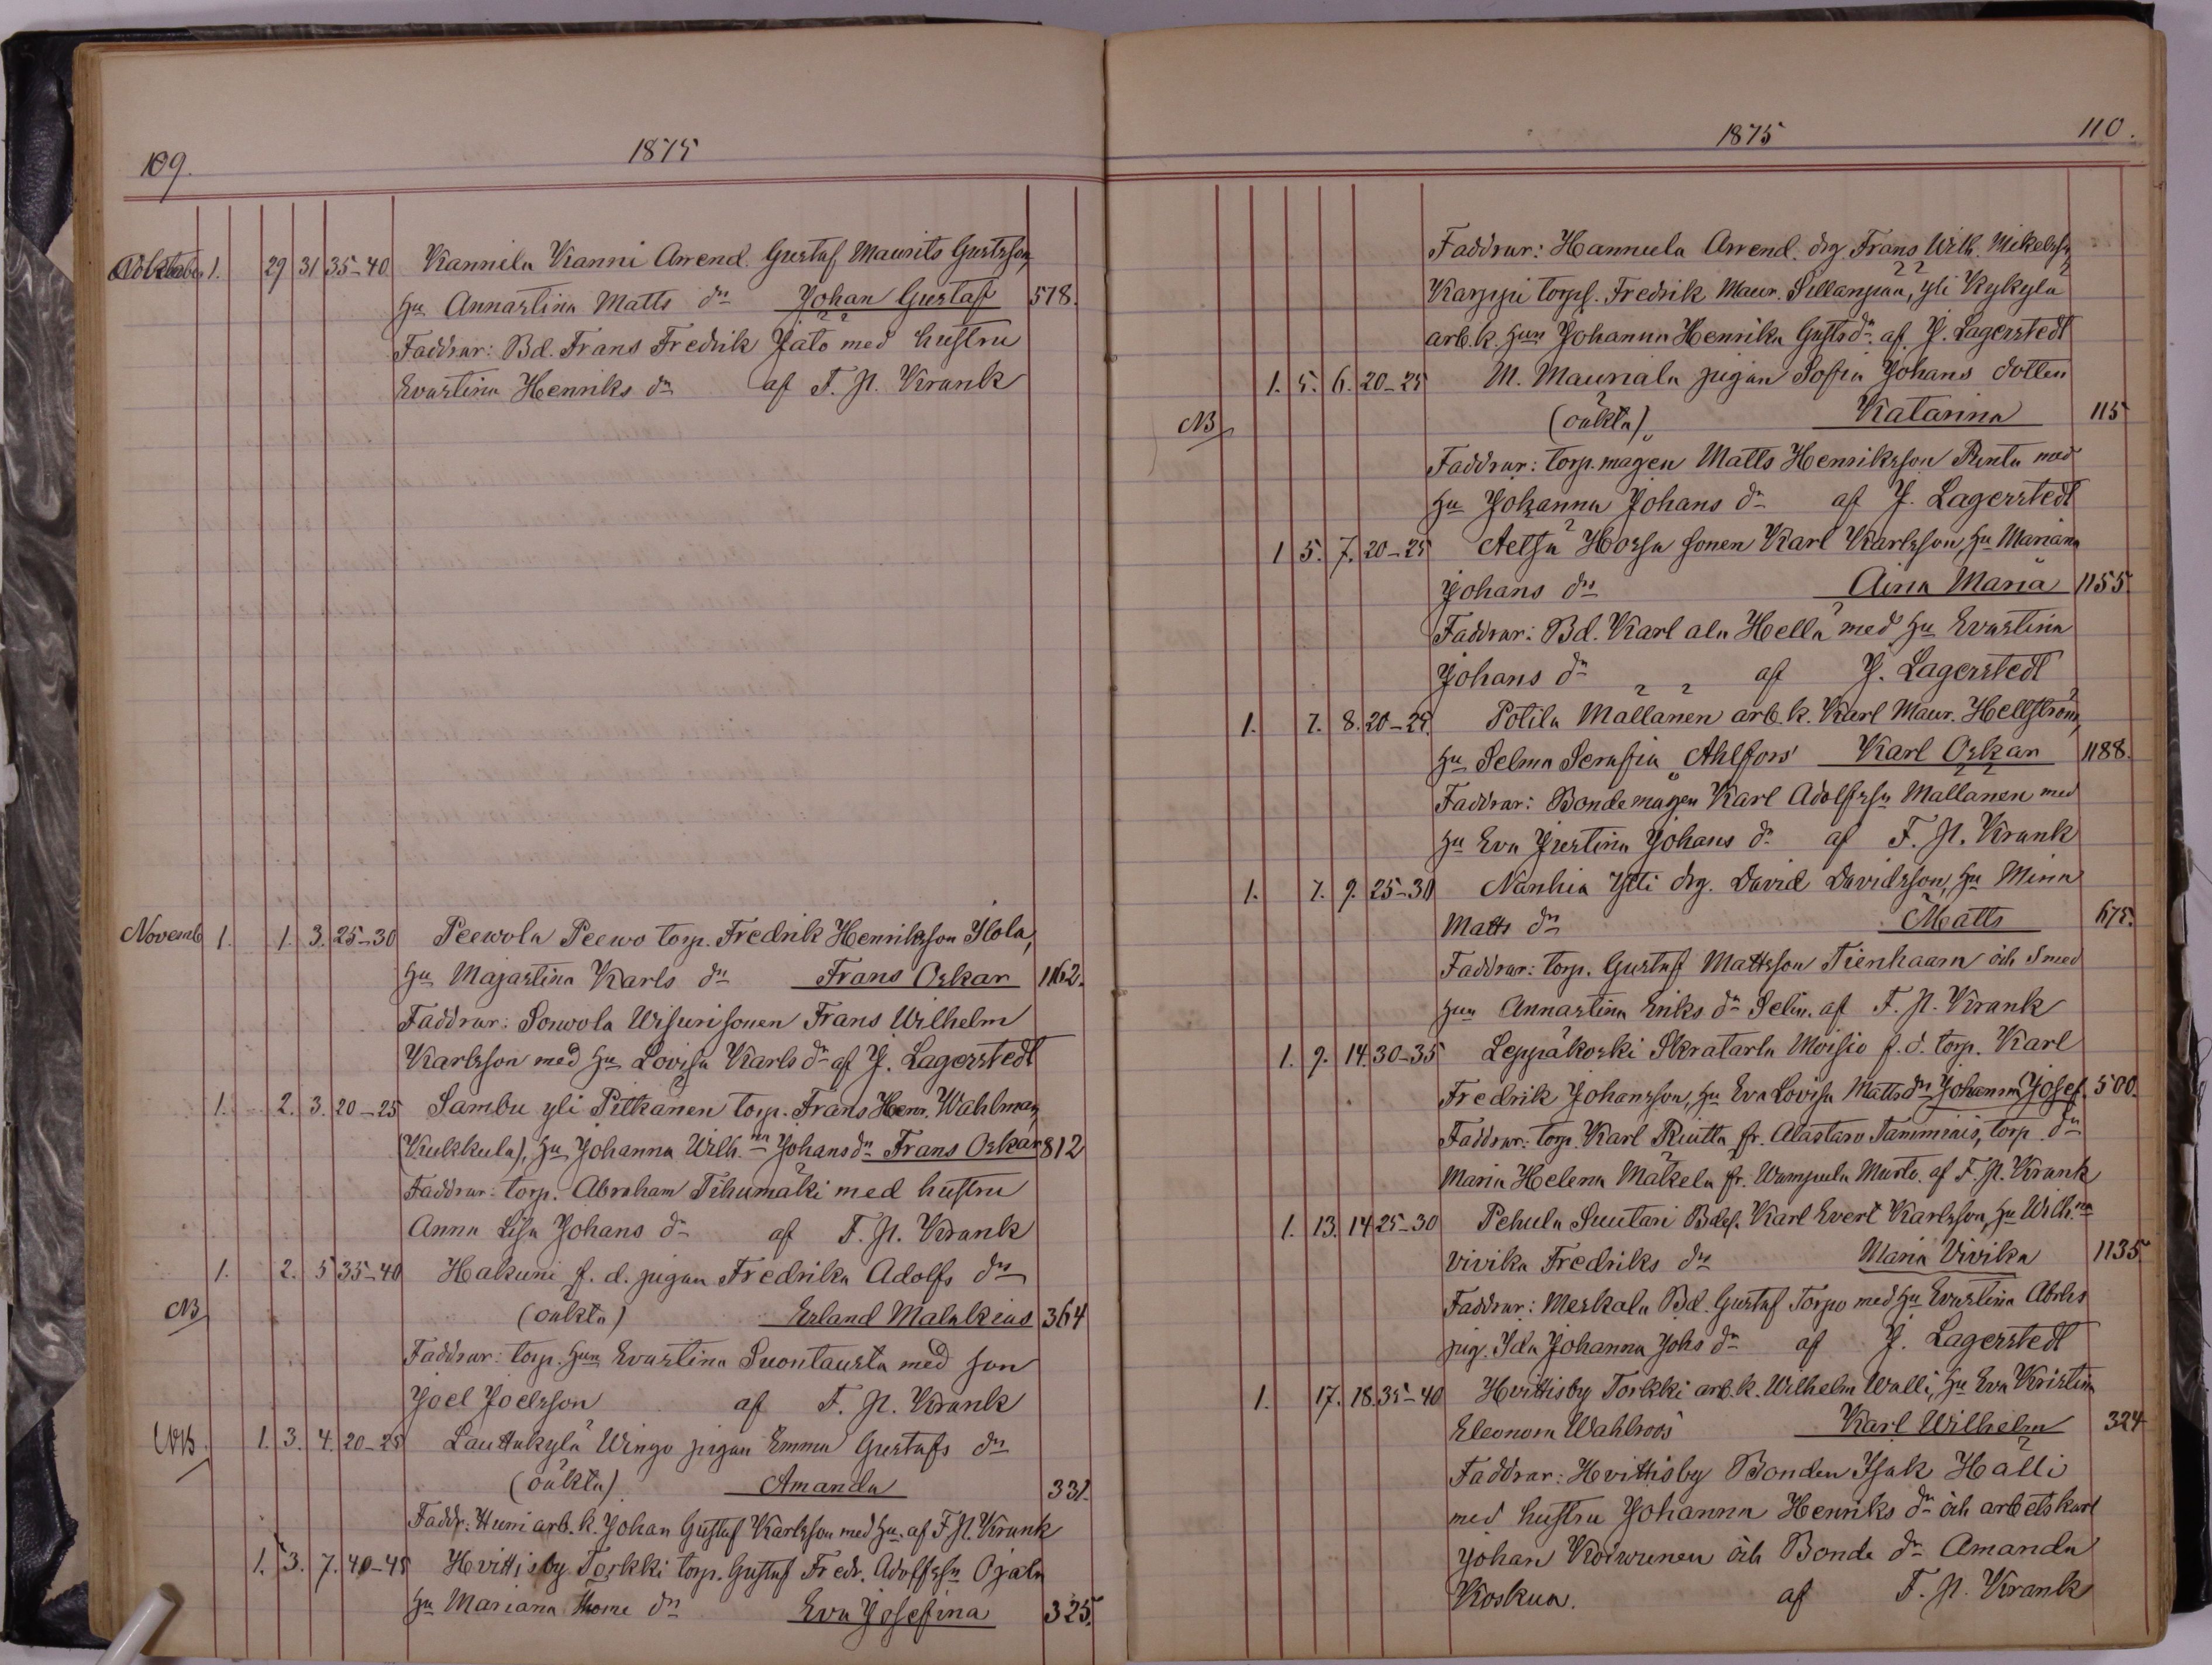 109.
1875
Oktober 1. 29 31 35-40 Kannila Kanni Arrend. Gustaf Maurits Gustsson,
Hu Annastina Matts dr Johan Gustaf 578.
Faddrar: Bd. Frans Fredrik Jätö med hustru
Evastina Henriks dr af F. H. Krank
Novemb 1. 1. 3. 25-30 Peewola Peewo torp. Fredrik Henriksson Ilola,
Hu Majastina Karls dr Frans Oskar 1162.
Faddrar: Sonnola sonen Frans Wilhelm
Karlsson med Hu Lovisa Karls dr af J. Lagerstedt
1. 2. 3. 20-25 Sambu yli Pitkänen torp. Frans Henr. Wahlman
(Kukkula), Hu Johanna Wilh.na Johans dr Frans Oskar 812
Faddrar: torp. Abraham Tihumäki med hustru
Anna Lisa Johans dr af F. H. Krank
1. 2. 5 35-40 Hakuni f. d. pigan Fredrika Adolfs dr
NB (oäkta) Erland Malakias 364
Faddrar: torp. Hun Evastina Suontausta med son
Joel Joelsson af F. H. Krank
NB. 1. 3. 4. 20-25 Lauttakylä Wingo pigan Emma Gustafs dr
(oäkta) Amanda 331.
Faddr. Huni arb. k. Johan Gustaf Karlsson med Hu. af F. H. Krank
1. 3. 7. 40-45 Hvittisby Torkki torp. Gustaf Fredr. Adolfssn Ojala
Hu Mariana Thome dr Eva Josefina 325.
1875
110.
Faddrar: Hannula Arrend. drg. Frans Wilh. Mikelssn,
Karppi torps. Fredrik Maur. Sillanpää, yli Kykylä
arb. k. Hun Johanna Henrika Gusts dr af J. Lagerstedt
1. 5. 6. 20-25 M. Mauriala pigan Sofia Johans dotter
NB (oäkta) Katarina 115
Faddrar: torp. magen Matts Henriksson Rinta med
Hu Johanna Johans dr af J. Lagerstedt
1 5. 7. 20-25 Aetsä Horsa sonen Karl Karlsson, Hu Mariana
Johans dr Aina Maria 1155.
Faddrar: Bd. Karl ala Hellä med Hu Evastina
Johans dr af J. Lagerstedt
1. 7. 8. 20-25. Potila Mallanen arb. k. Karl Maur. Hellström,
Hu Selma Serafia Ahlfors Karl Oskar 1188.
Faddrar: Bondemagen Karl Adolfssn Mallanen med
Hu Eva Justina Johans dr af F. H. Krank
1. 7. 9. 25-30 Nanhia Ylli drg. David Davidsson, Hu Mina
Matts dr Matts 675.
Faddrar: torp. Gustaf Mattsson Tienhaara och smed
Hun Annastina Eriks dr Selin. af F. H. Krank
1. 9. 14. 30-35 Leppäkoski Skratarla Moisio f. d. torp. Karl
Fredrik Johansson, Hu Eva Lovisa Matts dr Johanna Josef. 500.
Faddrar: torp. Karl Rintta fr. Alastaro Tammiais, torp. dr
Maria Helena Mäkelä fr. Wampula Murto. af F. H. Krank
1. 13. 14 25-30 Pehula Suutari Bdes. Karl Evert Karlsson, Hu Wilh.na
Vivika Fredriks dr Maria Vivika 1135.
Faddrar: Meskala Bd. Gustaf Torpo med Hu Evastina Abrhs
pig. Ida Johanna Johs dr af J. Lagerstedt
1. 17. 18. 35-40 Hvittisby Torkki arb. k. Wilhelm Walli, Hu Eva Kristina
Eleonora Wahlroos Karl Wilhelm 324
Faddrar: Hvittisby Bonden Isak Hälli
med hustru Johanna Henriks dr och arbetskarl
Johan Koiwunen och Bonde dr Amanda
Koskua. af F. H. Krank